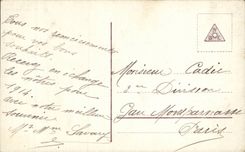 Tous nos remerciements
pour vos bons
souhaits
Recevez en échange
les nôtres pour
1914
avec notre meilleur
souvenir
Mr. Mme Savary
Monsieur Cadic
Division
Gare Montparnasse
Paris